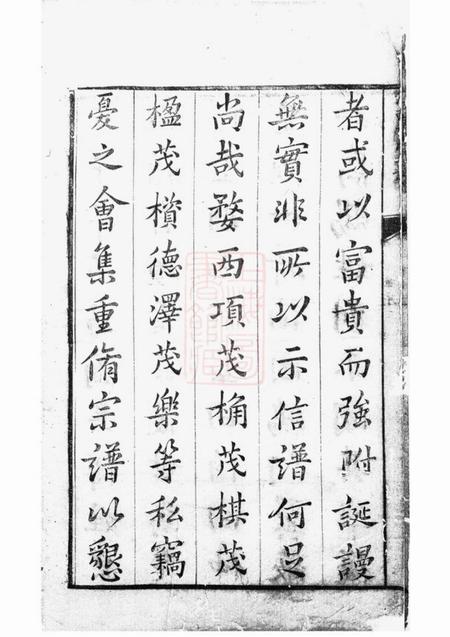 者或以富貴而強附誕謾
無實非所以示信譜何足
尚哉婺西項茂桷茂棋茂
楹茂櫕德澤茂樂等私竊
憂之會集重脩宗譜以懇